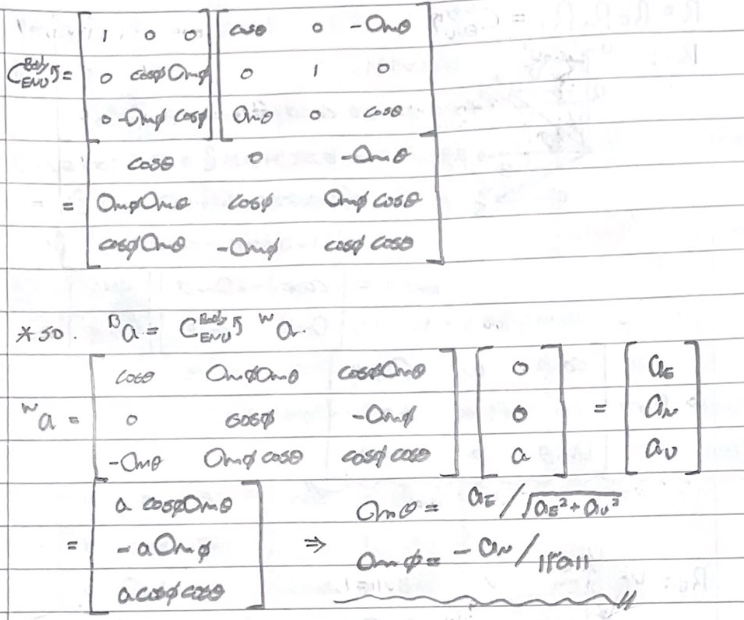 C_ENU^Body = [1 0 0; 0 cosφ sinφ; 0 -sinφ cosφ] [cosθ 0 -sinθ; 0 1 0; sinθ 0 cosθ]
= [cosθ 0 -sinθ; sinφ sinθ cosφ sinφ cosθ; cosφ sinθ -sinφ cosφ cosθ]
* so. ᴮa = C_ENU^Body ᵂa.
ᵂa = [cosθ sinφ sinθ cosφ sinθ; 0 cosφ -sinφ; -sinθ sinφ cosθ cosφ cosθ] [0; 0; a] = [a_E; a_N; a_U]
= [a cosφ sinθ; -a sinφ; a cosφ cosθ] ⇒ sinθ = a_E / √(a_E² + a_U²)
sinφ = -a_N / ||ᵂa||